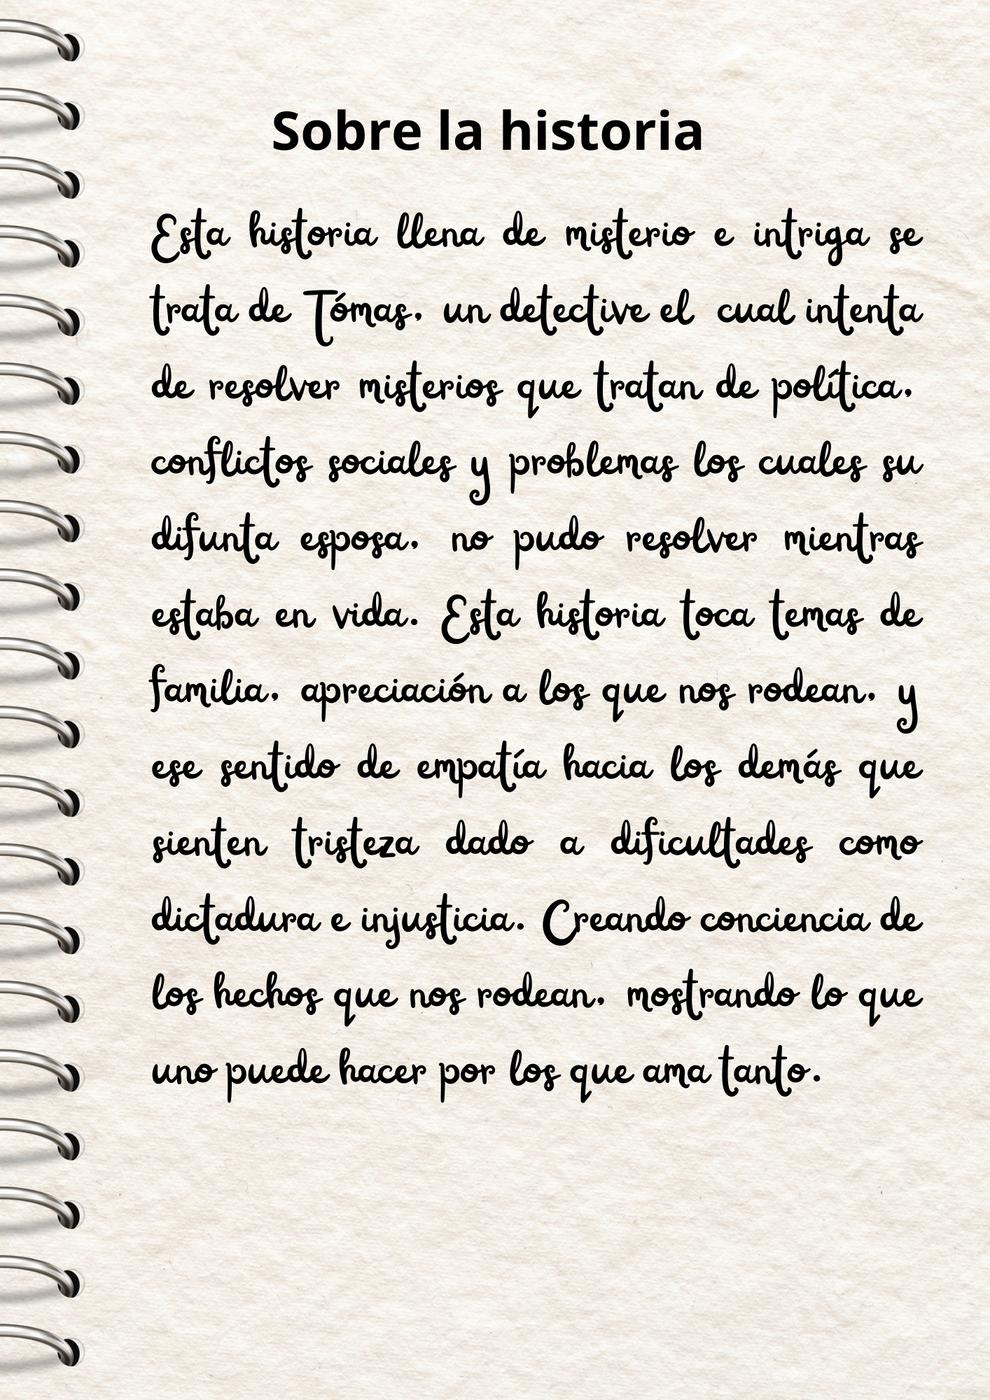 Sobre la historia
Esta historia llena de misterio e intriga se
trata de Tómas, un detective el cual intenta
de resolver misterios que tratan de política,
conflictos sociales y problemas los cuales su
difunta esposa, no pudo resolver mientras
estaba en vida. Esta historia toca temas de
familia, apreciación a los que nos rodean, y
ese sentido de empatía hacia los demás que
sienten tristeza dado a dificultades como
dictadura e injusticia. Creando conciencia de
los hechos que nos rodean, mostrando lo que
uno puede hacer por los que ama tanto.